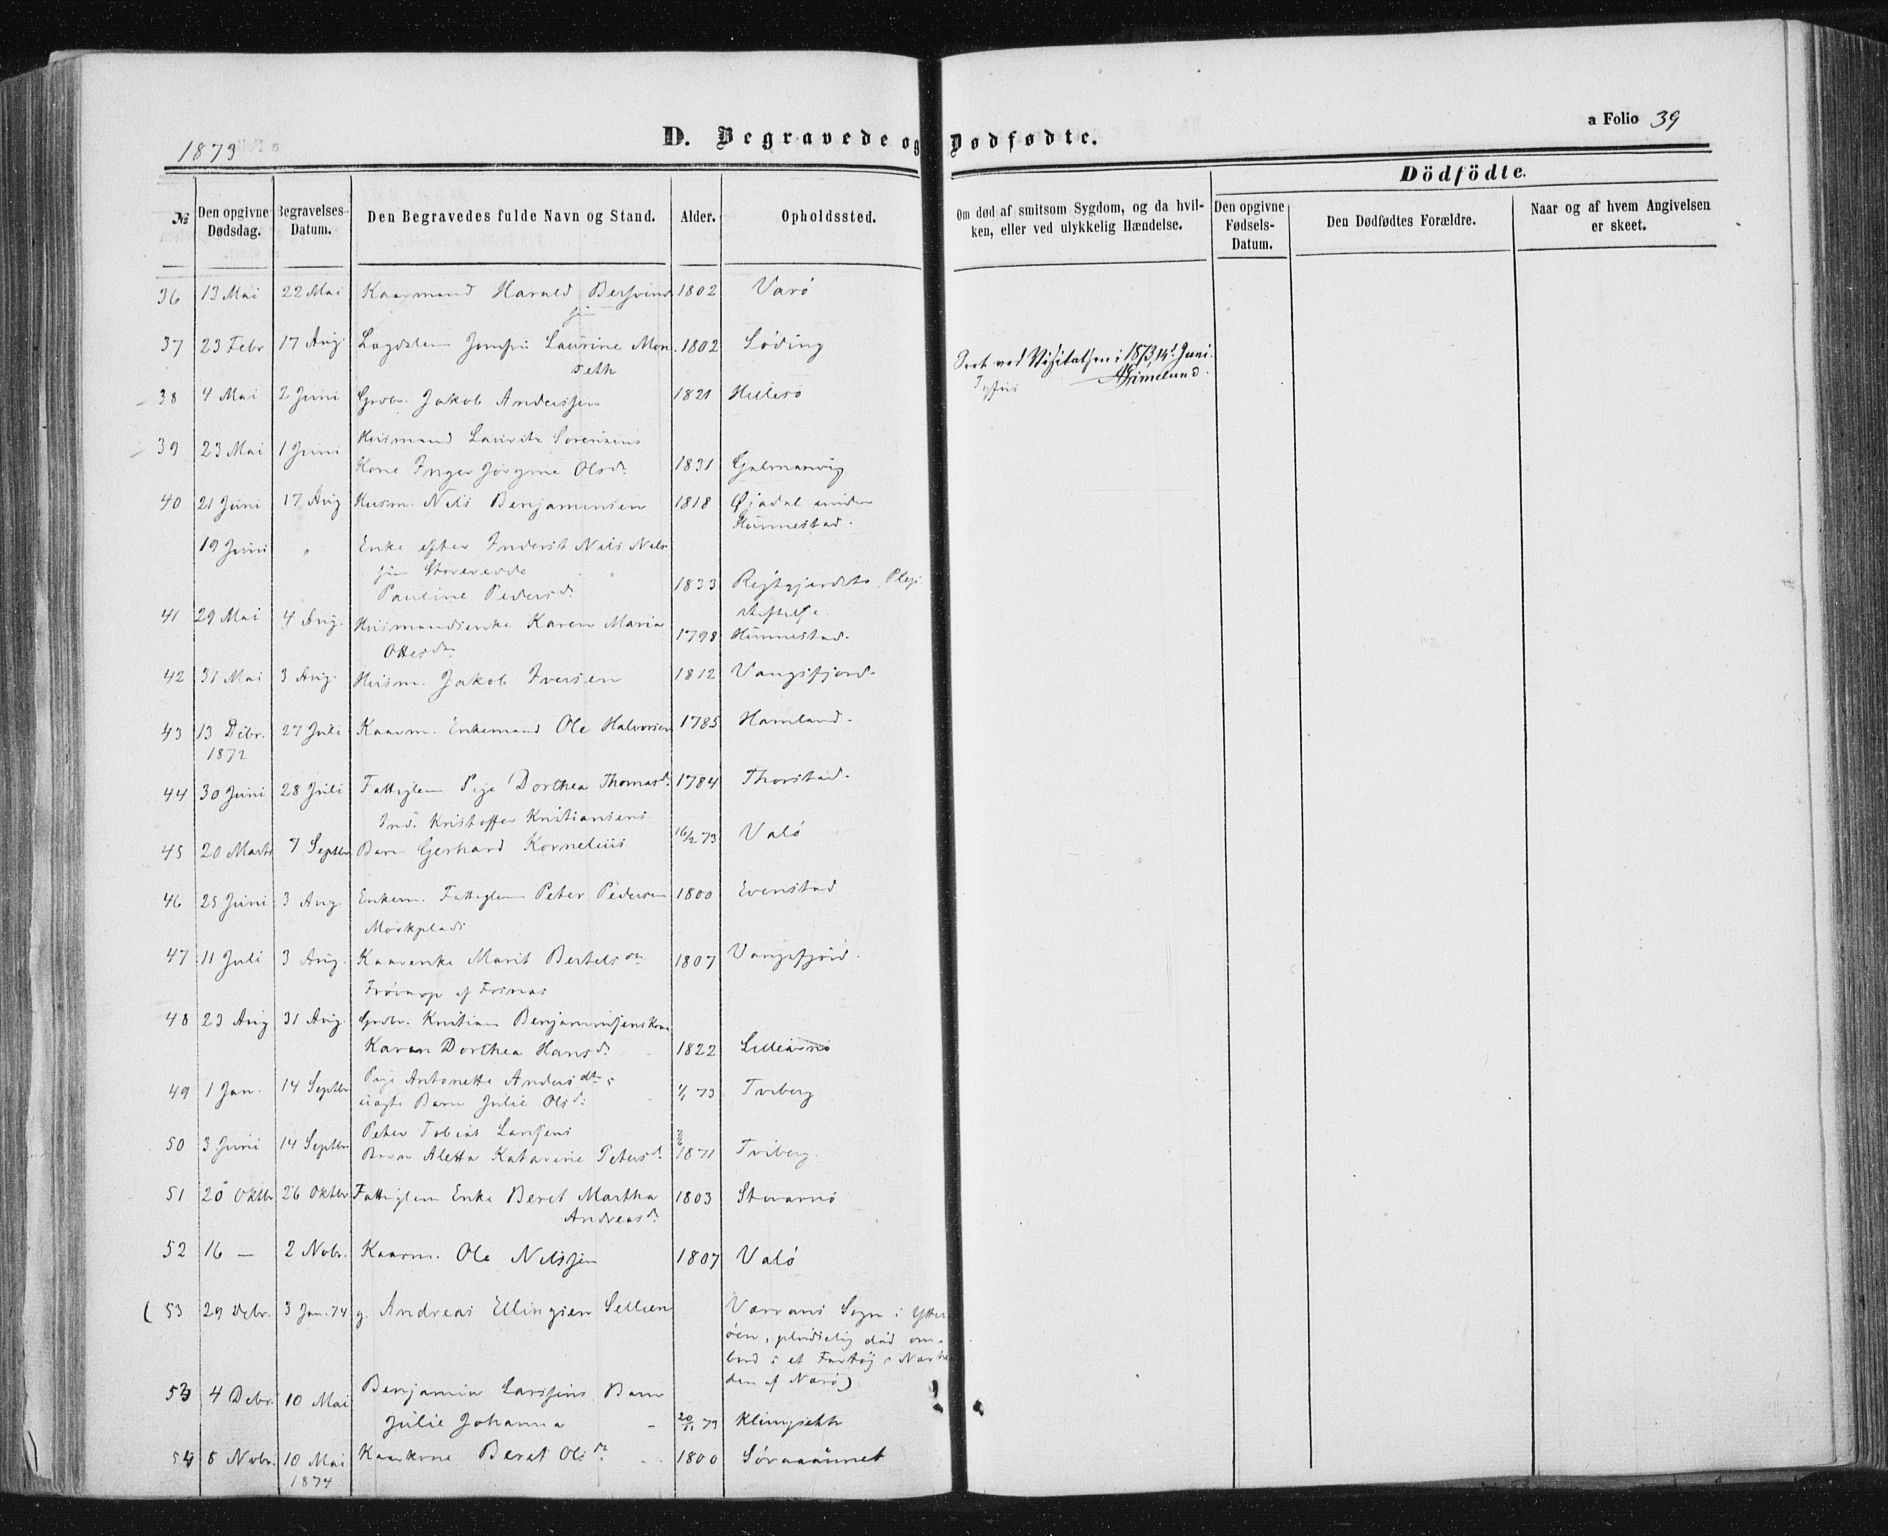 1873
D. Begravede og Dødfødte.
a Folio 39
Dödfödte.
№ Den opgivne Dødsdag. Begravelses-Datum. Den Begravedes fulde Navn og Stand. Alder. Opholdssted. Om død af smitsom Sygdom, og da hvilken, eller ved ulykkelig Hændelse. Den opgivne Fødsels-Datum. Den Dødfødtes Forældre. Naar og af hvem Angivelsen er skeet.
36 13 Mai 22 Mai Kaarmand Harald 1802 Varø
37 23 Febr 17 Aug. Lægdslem Laurine Mon- 1802 Løding
seth
1873 14d Juni.
AGrimelund.
38 4 Mai 2 Juni Grdbr. Jakob Anderssen 1821
39 23 Mai 1 Juni Husmand Lauritz Sorensens
Kone Inger Jørgine Olsdr. 1831
40 21 Juni 17 Aug Husm. Nels Benjaminsen 1818 Øjadal under
Hunnestad.
19 Juni " Enke efter Inderst Nils Nils-
sen
Pauline Pedersd. 1833 Plejestiftelse.
41 29 Mai 4 Aug. Husmandsenke Karen Maria
Ottesdr. 1798 Hunnestad.
42 31 Mai 3 Aug. Husm. Jakob Iversen 1812 Vangsfjord.
43 13 Debr. 27 Juli Kaarm. Enkemand Ole Halvorsen 1785 Hamland.
1872
44 30 Juni 28 Juli Fattiglem Pige Dorthea Thomasd. 1784 Thorstad.
Ind. Kristoffer Kristiansens
45 20 Marts 7 Septbr Barn Gerhard Kornelius 16/2 73 Valø
46 25 Juni 3 Aug. Enkem. Fattiglem Peter Pedersen 1800 Evenstad
Mørkplads
47 11 Juli 3 Aug. Kaarenke Marit Bertelsdr. 1807 Vangsfjord.
48 23 Aug 31 Aug. Grdbr. Kristian Benjaminsens Kone
Karen Dorthea Hansd. 1822 Lillearnø
49 1 Jan. 14 Septbr Pige Antonette Andersdtrs
uægte Barn Julie Olsd. 1/1 73 Tviberg
50 3 Juni 14 Septbr Peter Tobias Larsens
Barn Aletta Katarine Petersd. 1871 Tviberg.
51 20 Oktbr 26 Oktbr. Fattiglem Enke Beret Martha 1803 Storarnø
Andreasd.
52 16 — 2 Nvbr. Kaarm. Ole Nilssen 1807 Valø
( 53 29 Debr. 3 Jan. 74 g. Andreas Ellingsen Sellien Værrans Sogn i Ytter-
øen, pludselig død om-
bord i et Fartøj i Nærhe-
den af Nærø)
53 4 Debr. 10 Mai Benjamin Larssens Barn
Julie Johanna 20/11 73
54 8 Nvbr. 10 Mai Kaarkone Beret Olsdr. 1800
1874